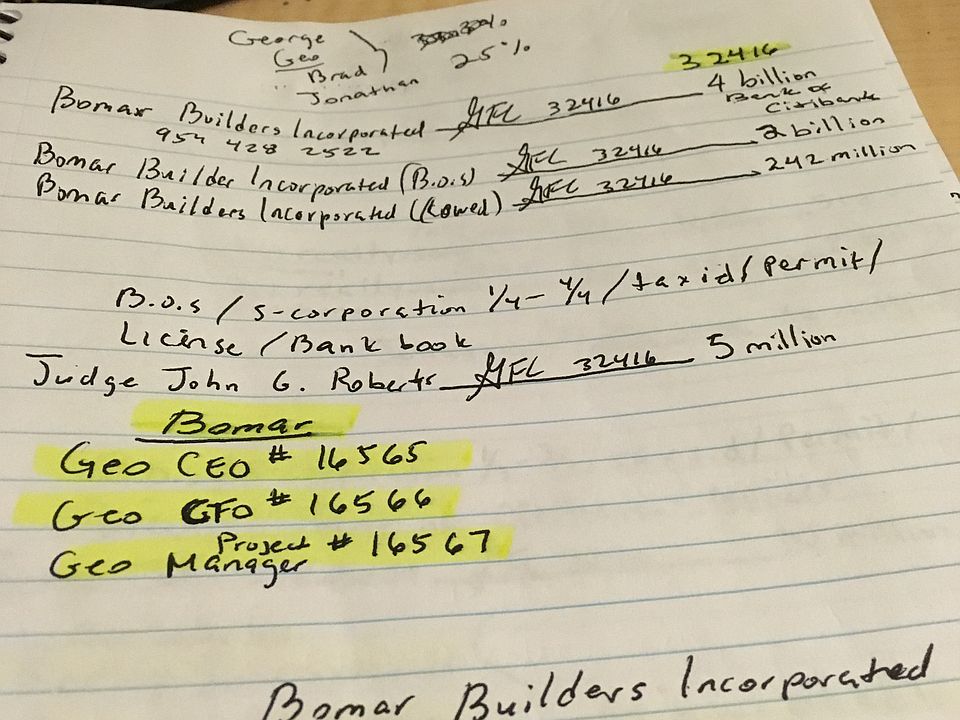 George
Geo
" Brad
Jonathan
25%
32416
Bomar Builders Incorporated GFL 32416 4 billion
Bank of
Citibank
954 428 2522
Bomar Builder Incorporated (B.o.s) GFL 32416 2 billion
Bomar Builders Incorporated ( GFL 32416 242 million
B.o.s / s-corporation 1/4 - 4/4 / tax id / permit /
License / Bank book
Judge John G. Roberts GFL 32416 5 million
Bomar
Geo CEO # 16565
Geo CFO # 16566
Geo Project Manager # 16567
Bomar Builders Incorporated